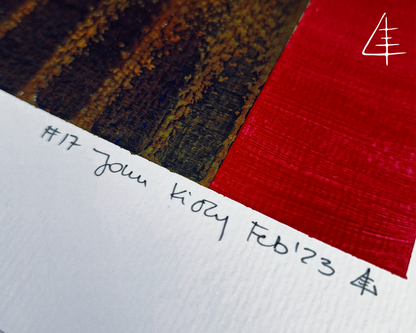 #17 John Kioly Feb'23